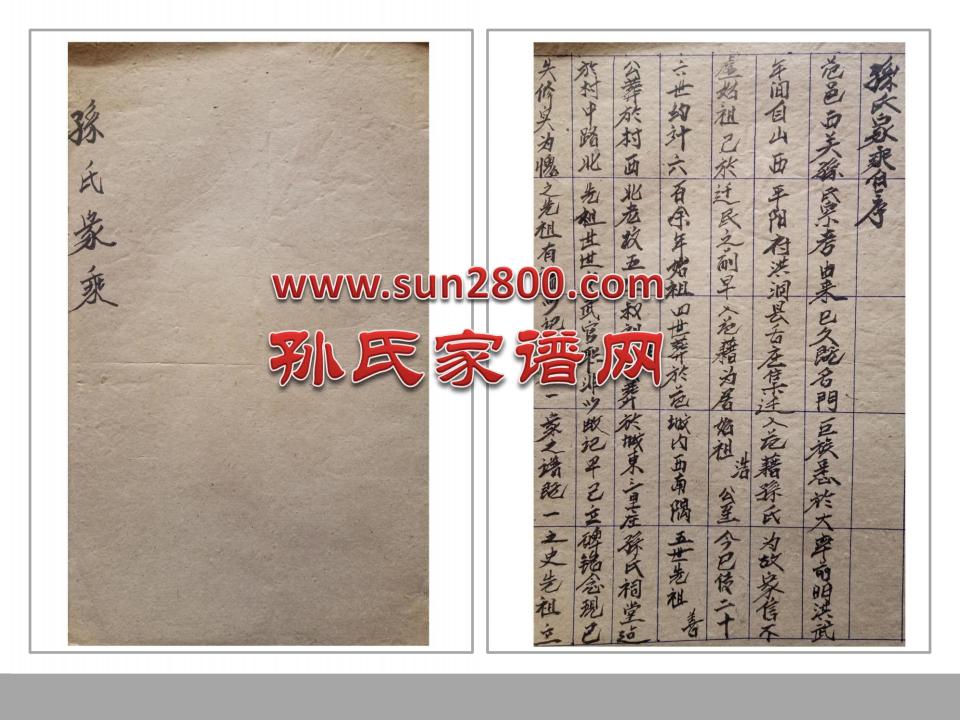 孫氏家乘
www.sun2800.com
孙氏家谱网
孫氏家乘自序
范邑西关孫氏宗考由来已久既名門巨族悉於大寧前明洪武
年间自山西平阳府洪洞县古庄集迁入范藉孫氏为故家信不
虚始祖已於迁民之前早入范藉为居始祖浩公至今已传二十
六世约计六百余年始祖四世葬於范城内西南隅五世先祖善
公葬於村西北老坟五叔葬於城東三里庄孫氏祠堂
於村中路北先祖世世武官职非以此记早已立碑銘念現已
失修实为愧之先祖有记一家之譜既一之史先祖立